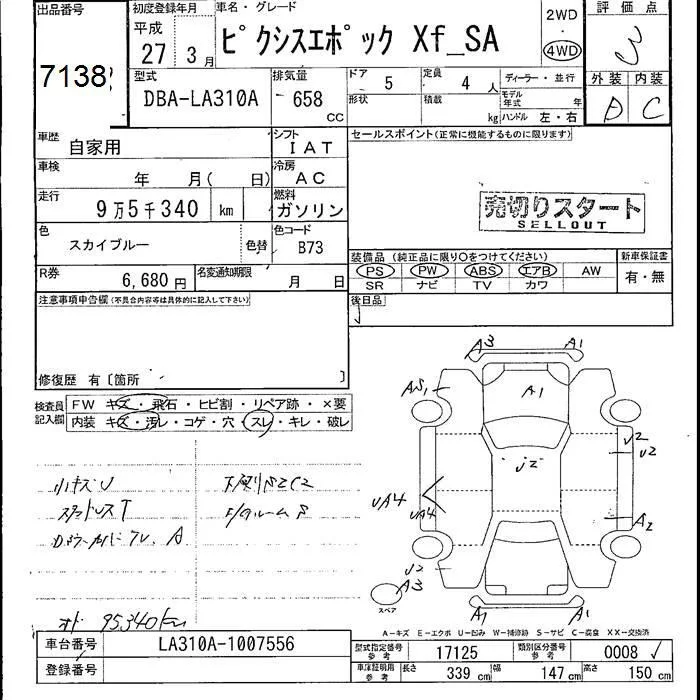 出品番号
7138
初度登録年月
平成
27 3月
車名・グレード
ピクシスエポック Xf_SA
2WD
・
4WD
評価点
3
外装 内装
D C
型式
DBA-LA310A
排気量
658
CC
ドア 5
定員 4 人
ディーラー・並行
形状
積載 kg
モデル年式 年
ハンドル 左・右
車歴
自家用
シフト
IAT
車検
年 月( 日)
冷房
AC
走行
9万5千340 km
燃料
ガソリン
色
スカイブルー
色替
色コード
B73
R券
6,680円
名変通知期限
月 日
セールスポイント(正常に機能するものに限ります)
売切りスタート
SELLOUT
装備品 (純正品に限り○をつけてください)
新車保証書
PS PW ABS エアB AW
有・無
SR ナビ TV カワ
後日品
注意事項申告欄(不具合内容等は具体的に記入して下さい)
修復歴 有〔箇所 〕
検査員記入欄
FW キズ・飛石・ヒビ割・リペア跡・×要
内装 キズ・汚レ・コゲ・穴・スレ・キレ・破レ
小キズU
スタットレスT
95340km
A3 A1
AS1 A1
U2
U2
U2
UA4
UA4
A2
U2
A3
スペア
A1 A1
A-キズ E-エクボ U-凹ミ W-補修跡 S-サビ C-腐食 XX-交換済
車台番号
LA310A-1007556
登録番号
型式指定番号
参考
17125
類別区分番号
参考
0008
車庫証明用
参考
長さ 339 cm
幅 147 cm
高さ 150 cm